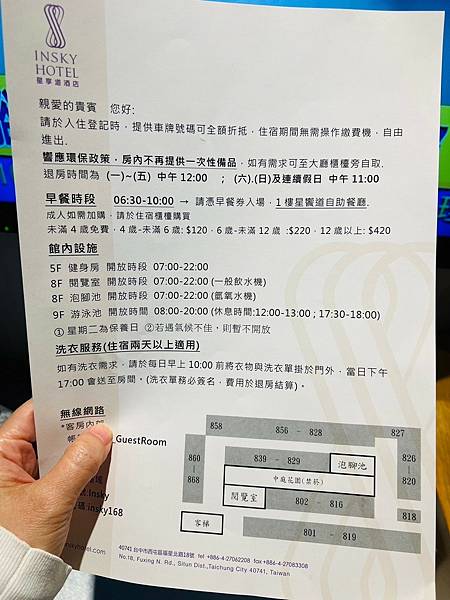 INSKY
HOTEL
星享道酒店
親愛的貴賓 您好:
請於入住登記時，提供車牌號碼可全額折抵，住宿期間無需操作繳費機，自由
進出.
響應環保政策，房內不再提供一次性備品，如有需求可至大廳櫃檯旁自取.
退房時間為 (一)~(五) 中午 12:00 ； (六).(日)及連續假日 中午 11:00
早餐時段 06:30-10:00 → 請憑早餐券入場，1 樓星饗道自助餐廳.
成人如需加購，請於住宿櫃檯購買
未滿 4 歲免費，4 歲-未滿 6 歲: $120，6 歲-未滿 12 歲 :$220，12 歲以上: $420
館內設施
5F 健身房 開放時段 07:00-22:00
8F 閱覽室 開放時段 07:00-22:00 (一般飲水機)
8F 泡腳池 開放時段 07:00-22:00 (氫氧水機)
9F 游泳池 開放時間 08:00-20:00 (休息時間:12:00-13:00 ; 17:30-18:00)
① 星期二為保養日 ②若遇氣候不佳，則暫不開放
洗衣服務(住宿兩天以上適用)
如有洗衣需求，請於每日早上 10:00 前將衣物與洗衣單掛於門外，當日下午
17:00 會送至房間。(洗衣單務必簽名，費用於退房結算)。
無線網路
*客房內
帳 _GuestRoom
Insky
insky168
858
856 - 828
827
860
-
868
839 - 829
泡腳池
826
-
820
中庭花園(禁菸)
閱覽室
802 - 816
818
客梯
801 - 819
nskyhotel.com
40741 台中市西屯區福星北路18號 tel +886-4-27062208 fax +886-4-27083308
No.18, Fuxing N. Rd., Situn Dist.,Taichung City 40741, Taiwan